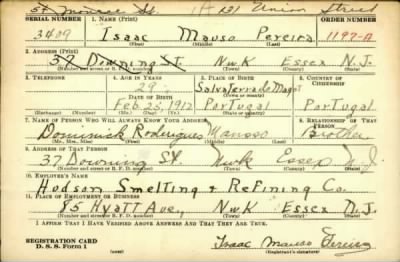 54 Monroe St. 131 Union Street
SERIAL NUMBER 1. NAME (Print) ORDER NUMBER
3409 Isaac Mauso Pereira 1197-A
(First) (Middle) (Last)
2. ADDRESS (Print)
37 Downing St. Nwk Essex N.J.
(Number and street or R. F. D. number) (Town) (County) (State)
3. TELEPHONE 4. AGE IN YEARS 5. PLACE OF BIRTH 6. COUNTRY OF CITIZENSHIP
29 Salvaterra de Magos
DATE OF BIRTH (Town or county)
Feb. 25, 1912 Portugal Portugal
(Exchange) (Number) (Mo.) (Day) (Yr.) (State or country)
7. NAME OF PERSON WHO WILL ALWAYS KNOW YOUR ADDRESS 8. RELATIONSHIP OF THAT PERSON
Dominick Roderigues Manoso Brother
(Mr., Mrs., Miss) (First) (Middle) (Last)
9. ADDRESS OF THAT PERSON
37 Downing St. Nwk Essex N.J.
(Number and street or R. F. D. number) (Town) (County) (State)
10. EMPLOYER'S NAME
Hudson Smelting & Refining Co.
11. PLACE OF EMPLOYMENT OR BUSINESS
85 Hyatt Ave., Nwk Essex N.J.
(Number and street or R. F. D. number) (Town) (County) (State)
I AFFIRM THAT I HAVE VERIFIED ABOVE ANSWERS AND THAT THEY ARE TRUE.
REGISTRATION CARD
D. S. S. Form 1 Isaac Mauso Pereira
(Registrant's signature)